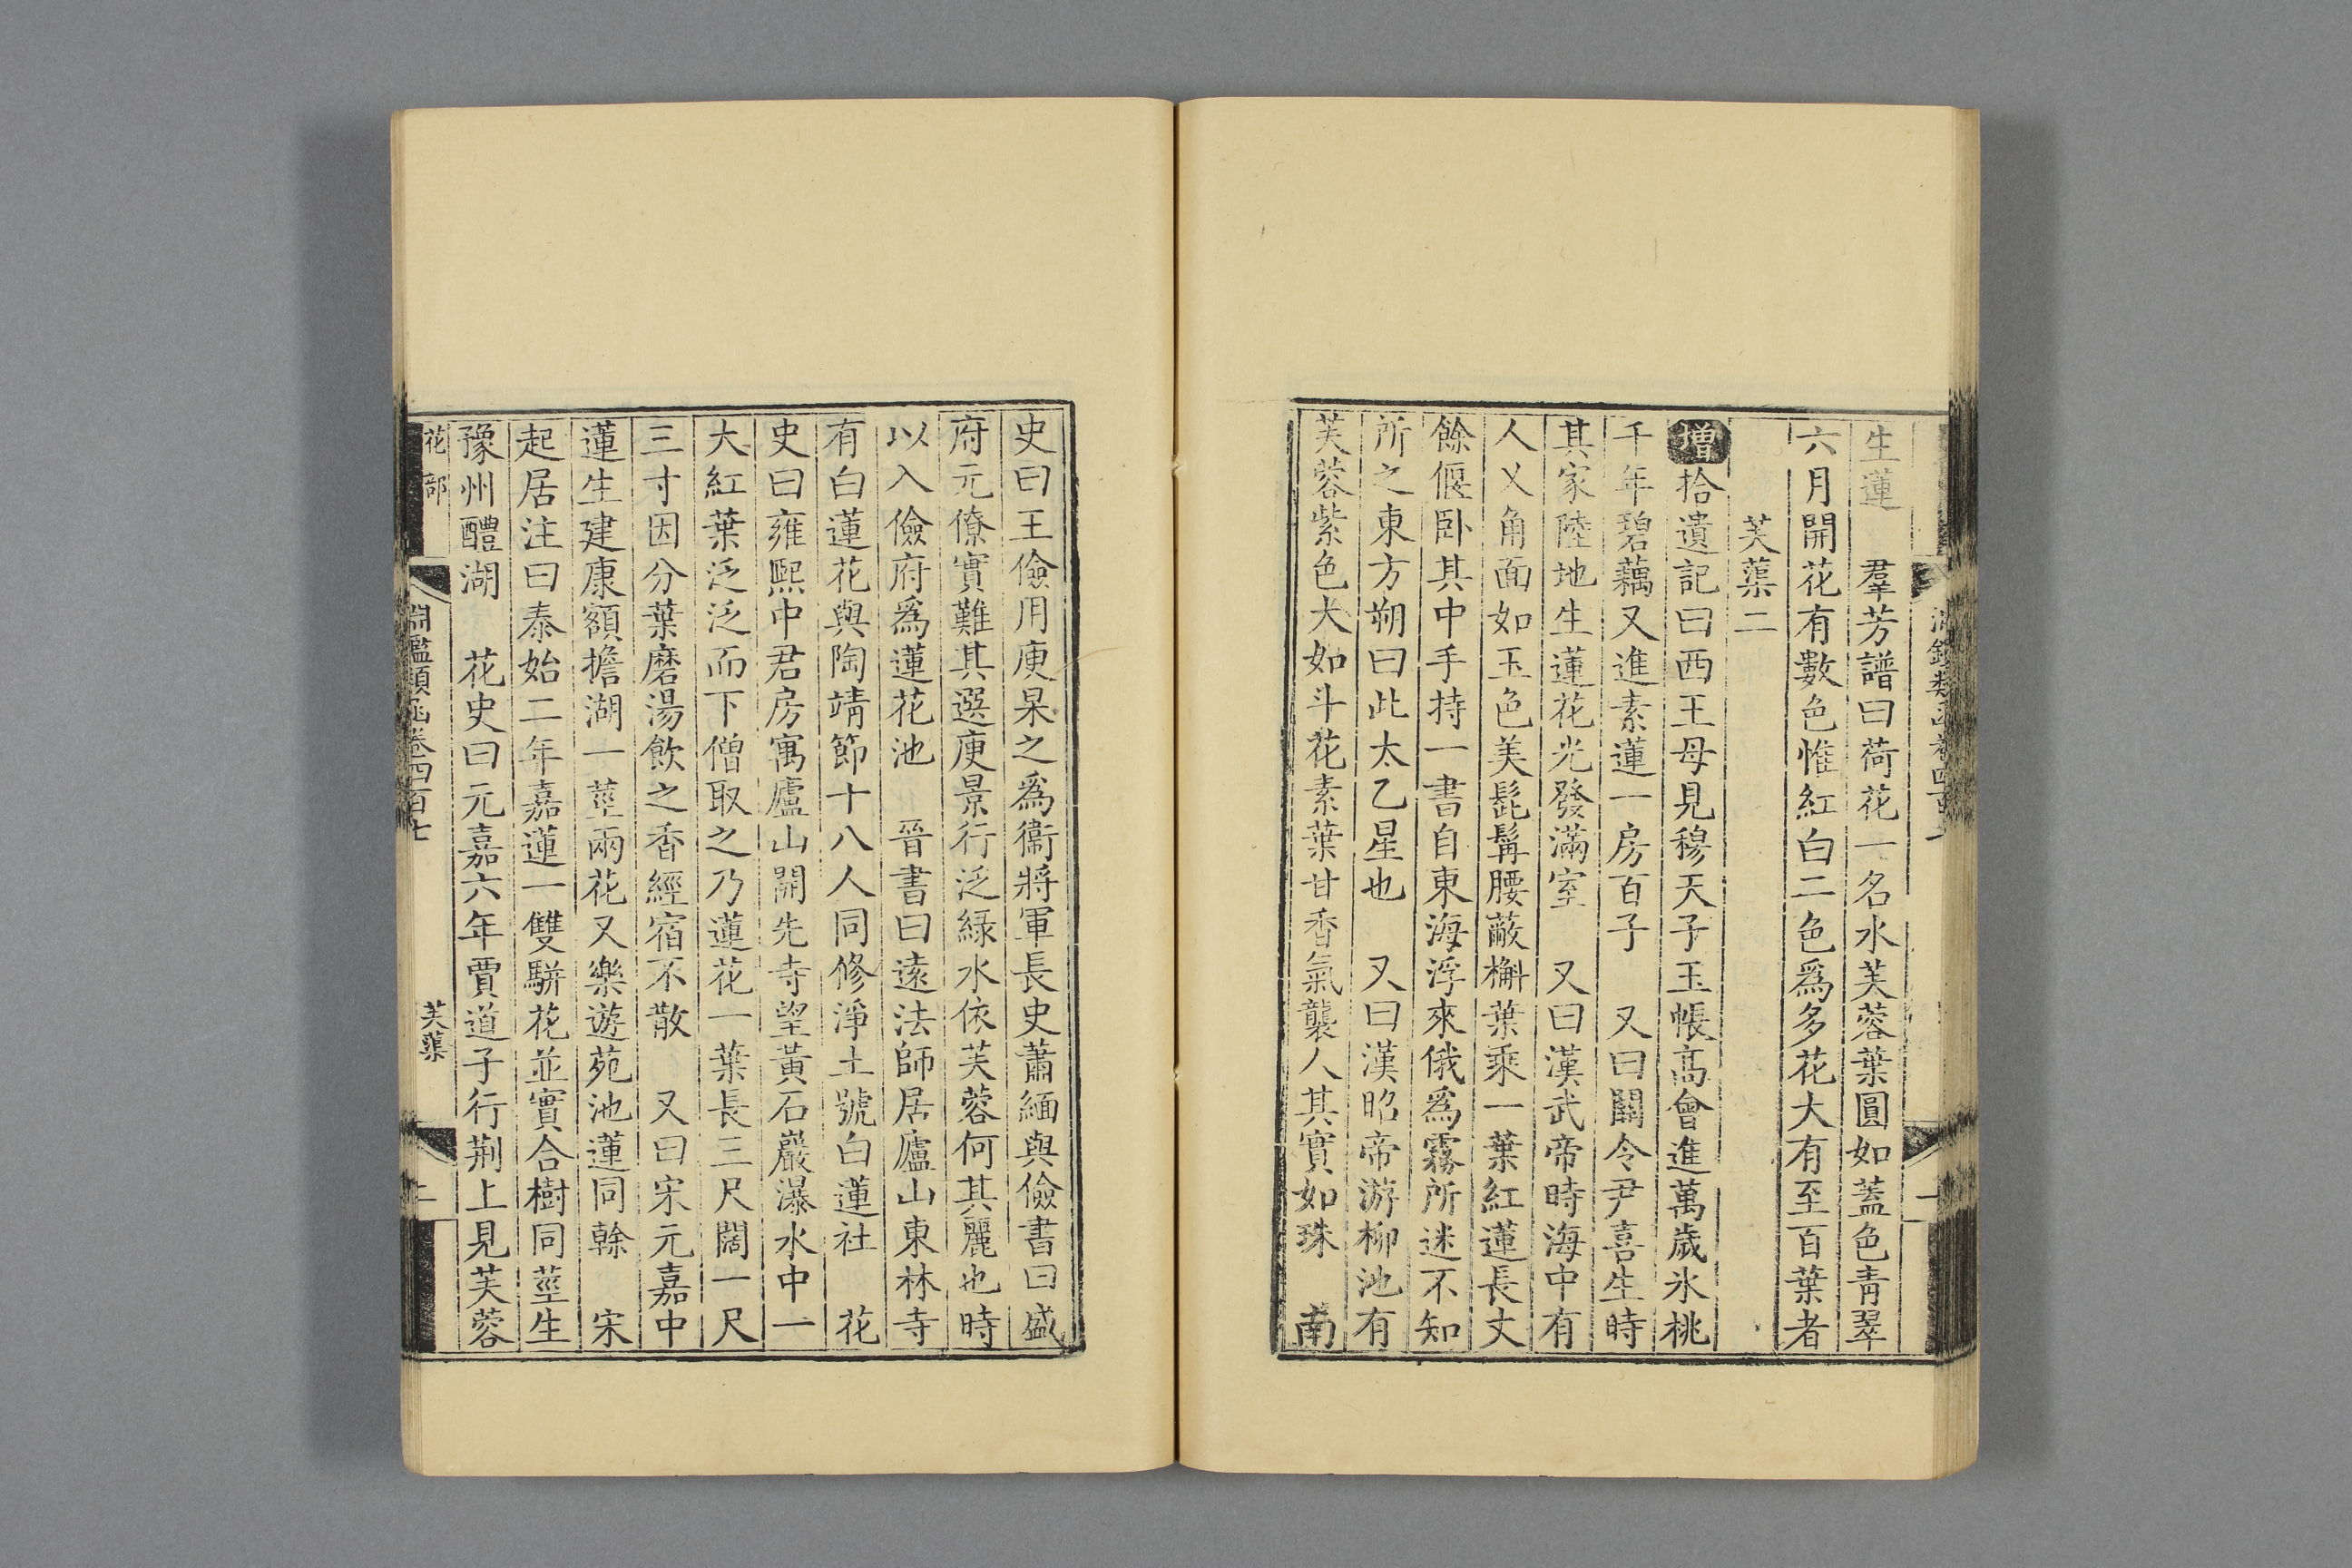 生蓮　羣芳譜曰荷花一名水芙蓉葉圓如蓋色青翠
六月開花有數色惟紅白二色爲多花大有至百葉者
芙蕖二
增拾遺記曰西王母見穆天子玉帳高會進萬歲氷桃
千年碧藕又進素蓮一房百子　又曰關令尹喜生時
其家陸地生蓮花光發滿室　又曰漢武帝時海中有
人乂角面如玉色美髭髯腰蔽槲葉乘一葉紅蓮長丈
餘偃卧其中手持一書自東海浮來俄爲霧所迷不知
所之東方朔曰此太乙星也　又曰漢昭帝游柳池有
芙蓉紫色大如斗花素葉甘香氣襲人其實如珠　南
史曰王儉用庾杲之爲衞將軍長史蕭緬與儉書曰盛
府元僚實難其選庾景行泛緑水依芙蓉何其麗也時
以入儉府爲蓮花池　晉書曰遠法師居廬山東林寺
有白蓮花與陶靖節十八人同修淨土號白蓮社　花
史曰雍熙中君房寓廬山開先寺望黃石巖瀑水中一
大紅葉泛泛而下僧取之乃蓮花一葉長三尺闊一尺
三寸因分葉磨湯飲之香經宿不散　又曰宋元嘉中
蓮生建康額擔湖一莖兩花又樂遊苑池蓮同榦　宋
起居注曰泰始二年嘉蓮一雙駢花並實合樹同莖生
豫州醴湖　花史曰元嘉六年賈道子行荆上見芙蓉
花部　淵鑑類函卷四百七　芙蕖　二